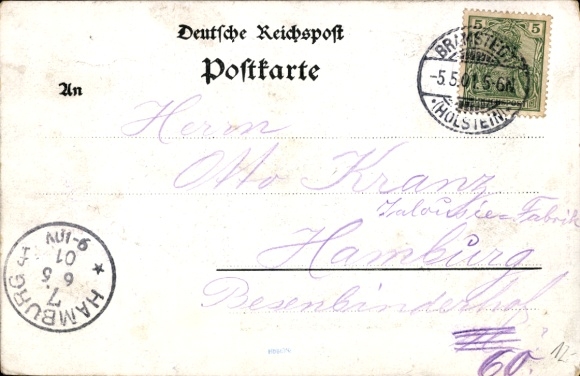 Deutsche Reichspost
Postkarte
An
5 5
BRAMSTEDT
-5.5.01.5-6N.
(HOLSTEIN)
Herrn
Otto Kranz
Jalousie=Fabrik
Hamburg
Besenbinderhof
60.
12.-
HAMBURG
7
6.5.
01